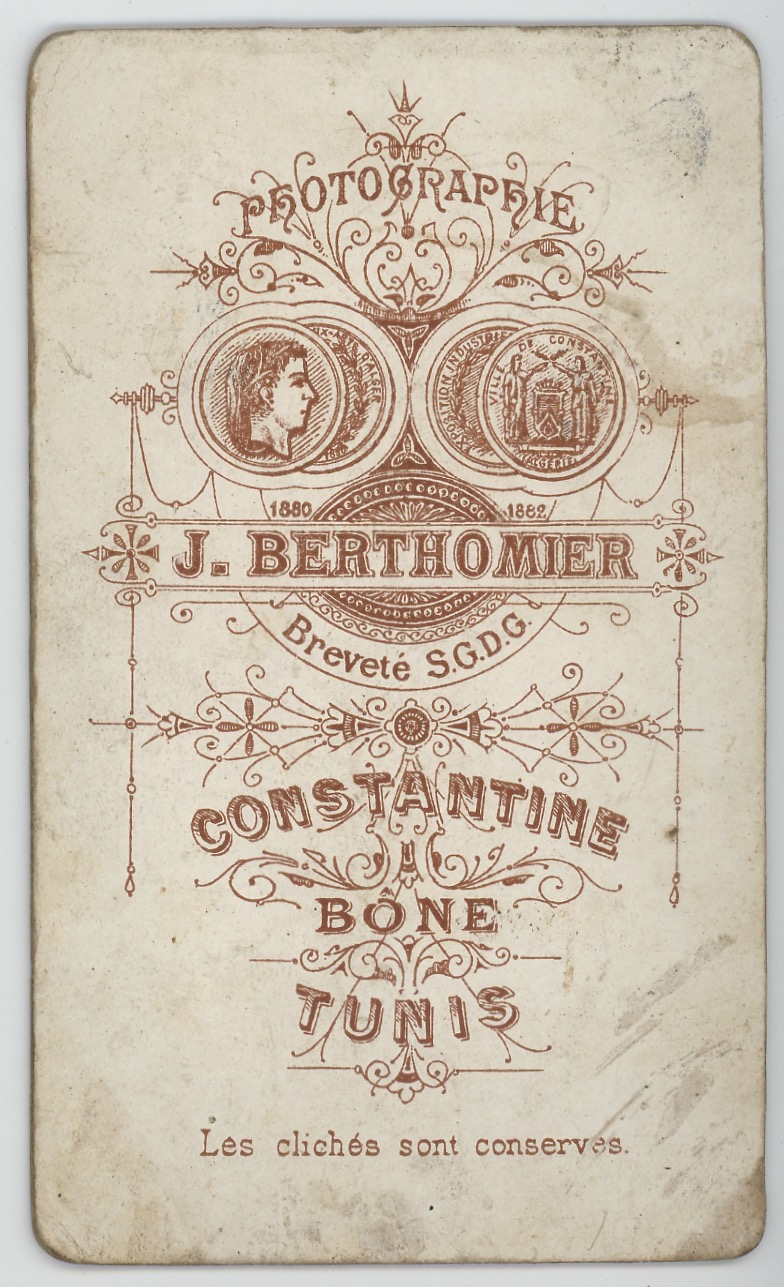 PHOTOGRAPHIE
EXPOSITION INDUSTRIE
VILLE DE CONSTANTINE
ALGERIE
1880 1882
J. BERTHOMIER
Breveté S.G.D.G.
CONSTANTINE
BÔNE
TUNIS
Les clichés sont conservés.